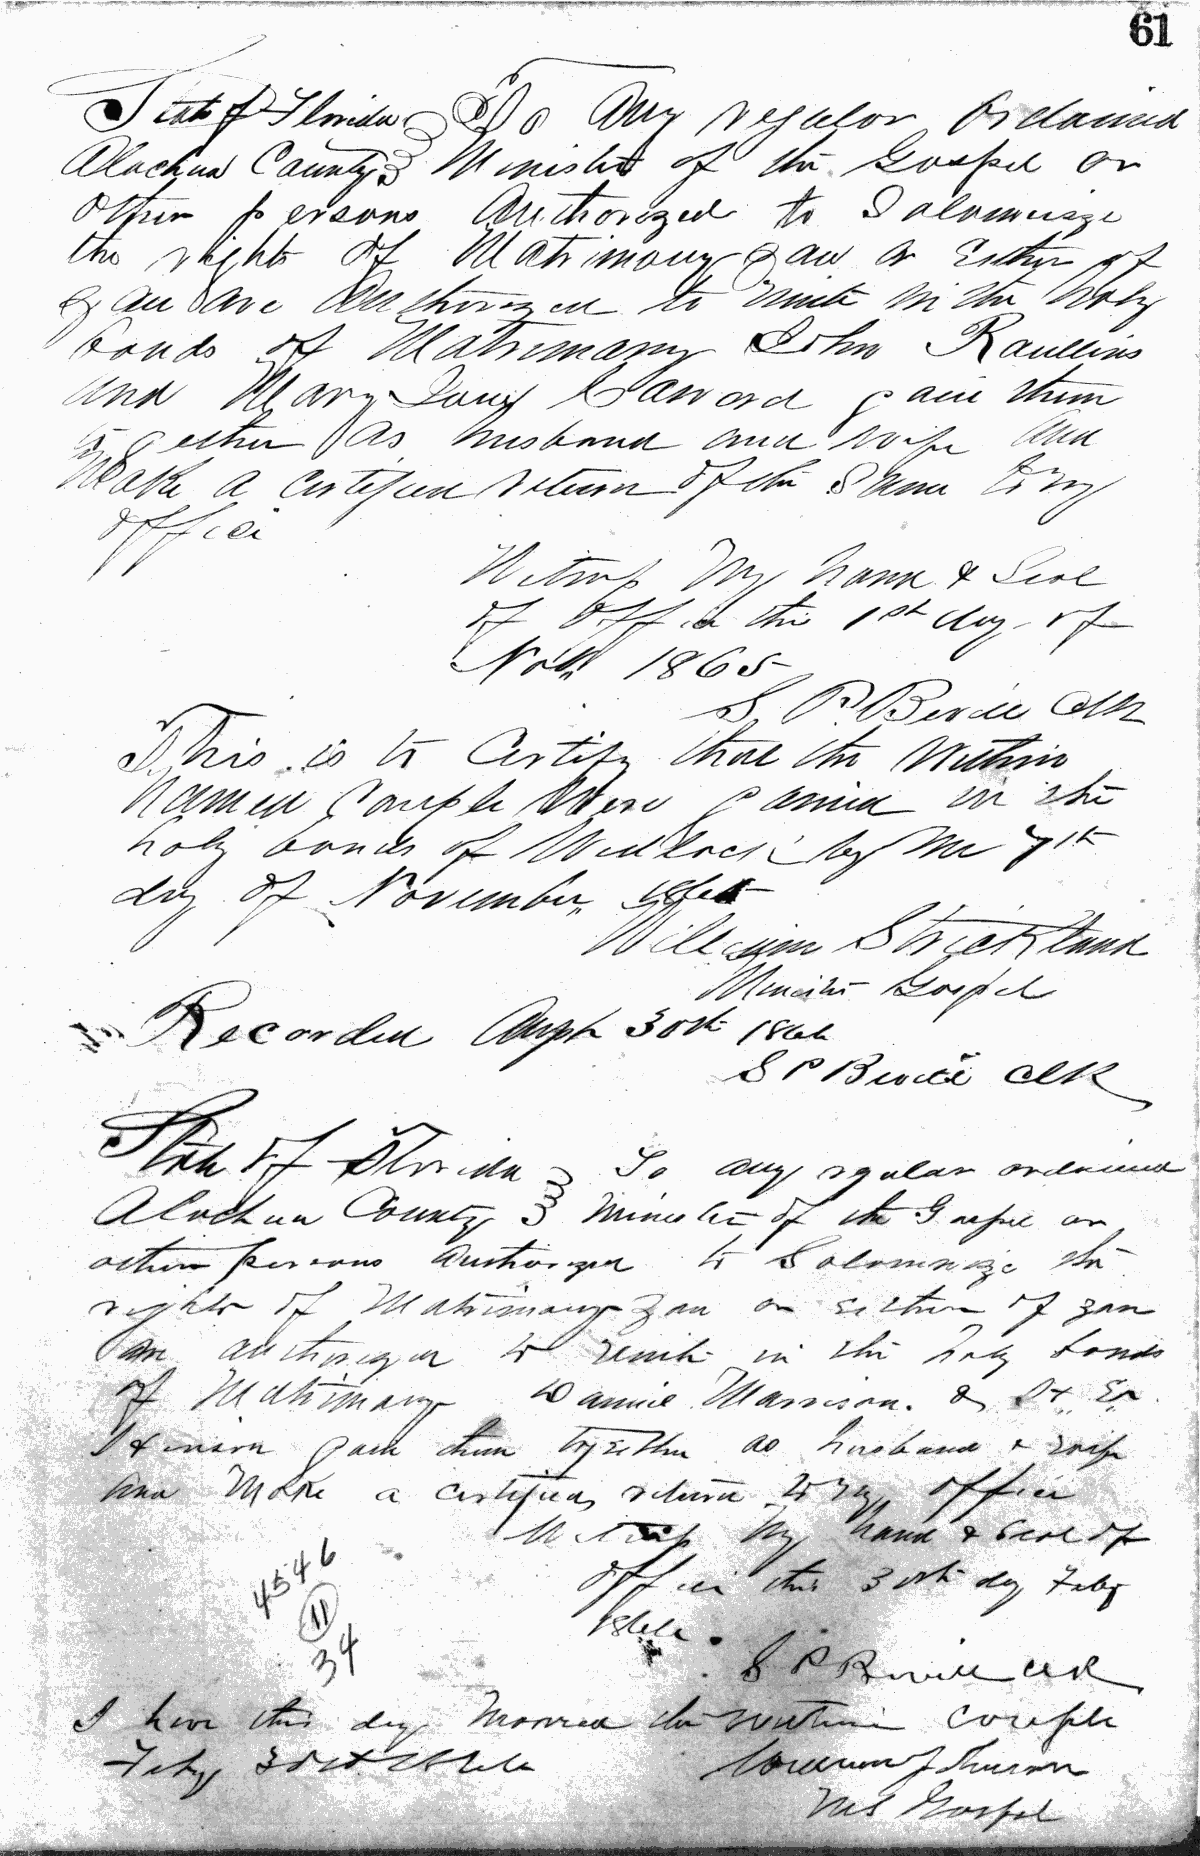 61
State of Florida To Any regular Ordained
Alachua County Minister of the Gospel or
other persons Authorized to Solemnize
the rights of Matrimony you or Either of
you are Authorized to unite in the holy
bonds of Matrimony John Raullins
and Mary Jane join them
together as husband and wife and
Make a certified return of the Same to my
office
Witness My hand & Seal
of Office this 1st day of
Nov 1865
S. P. Bevill Clk
This is to Certify that the Within
named couple Were joined in the
holy bonds of Wedlock by me 7th
day of November
William Strickland
Minister Gospel
Recorded 30th 1866
S P Bevill Clk
State of Florida To any regular ordained
Alachua County Minister of the Gospel or
other persons Authorized to Solemnize the
rights of Matrimony you or either of you
are authorized to unite in the holy bonds
of Matrimony Morrison &
join them together as husband & wife
and Make a certified return to my office
Witness My hand & Seal of
office this 30th day Feby
1866
S P Bevill Clk
4546
11
34
I have this day Married the within couple
Feby 30th 1866
Gospel